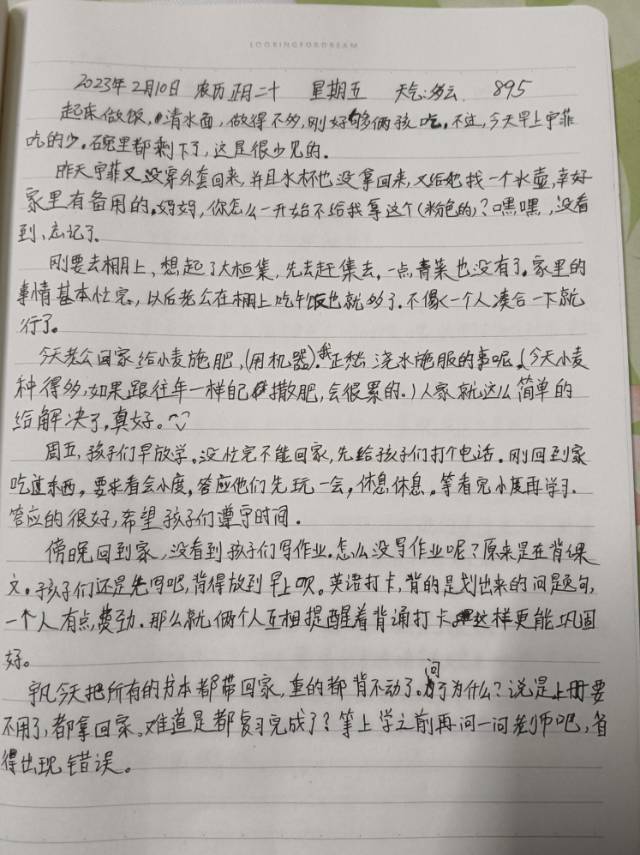 LOOKINGFORDREAM
2023年2月10日 农历正月二十 星期五 天气:多云 895
起床做饭,清水面,做得不多,刚好够俩孩吃。不过,今天早上宇菲
吃的少。碗里都剩下了,这是很少见的。
昨天宇菲又没穿外套回来,并且水杯也没拿回来,又给她找一个水壶,幸好
家里有备用的。妈妈,你怎么一开始不给我拿这个(粉色的)?嘿嘿,没看
到,忘记了。
刚要去棚上,想起了大桓集,先去赶集去。一点青菜也没有了。家里的
事情基本忙完,以后老公在棚上吃午饭也就够了。不像一个人凑合一下就
行了。
今天老公回家给小麦施肥,(用机器)。我正愁浇水施服的事呢。(今天小麦
种得多,如果跟往年一样自己撒肥,会很累的。)人家就这么简单的
给解决了,真好。
周五,孩子们早放学。没忙完不能回家,先给孩子们打个电话。刚回到家
吃过东西,要求看会小度,答应他们先玩一会,休息休息。等看完小度再学习.
答应的很好,希望孩子们遵守时间.
傍晚回到家,没看到孩子们写作业.怎么没写作业呢?原来是在背课
文。孩子们还是先写吧,背得放到早上呗。英语打卡,背的是划出来的问题句,
一个人有点费劲.那么就俩个人互相提醒着背诵打卡。这样更能巩固
好。
宇凡今天把所有的书本都带回家,重的都背不动了。问为什么?说是上册要
不用了,都拿回家。难道是都复习完成了?等上学之前再问一问老师吧,省
得出现错误。